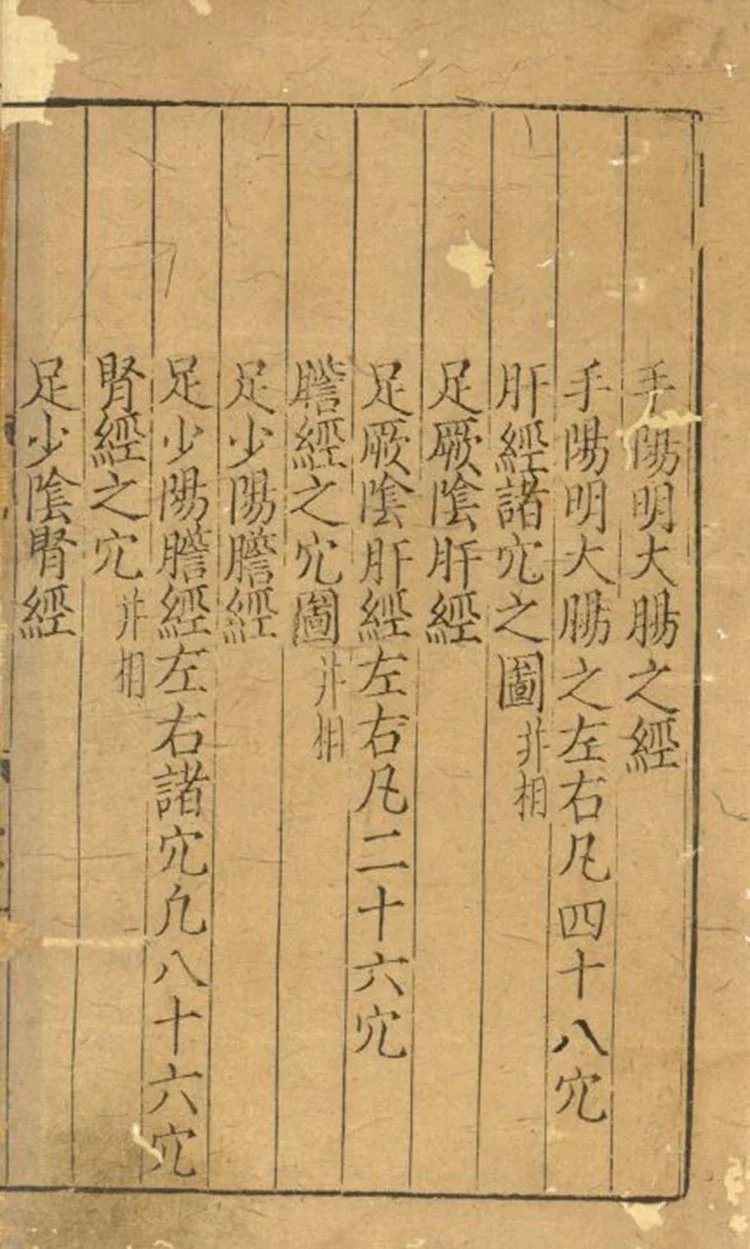 手陽明大膓之經
手陽明大膓之左右凡四十八穴
肝經諸穴之圖 并相
足厥陰肝經
足厥陰肝經左右凡二十六穴
膽經之穴圖 并相
足少陽膽經
足少陽膽經左右諸穴凢八十六穴
腎經之穴 并相
足少陰腎經